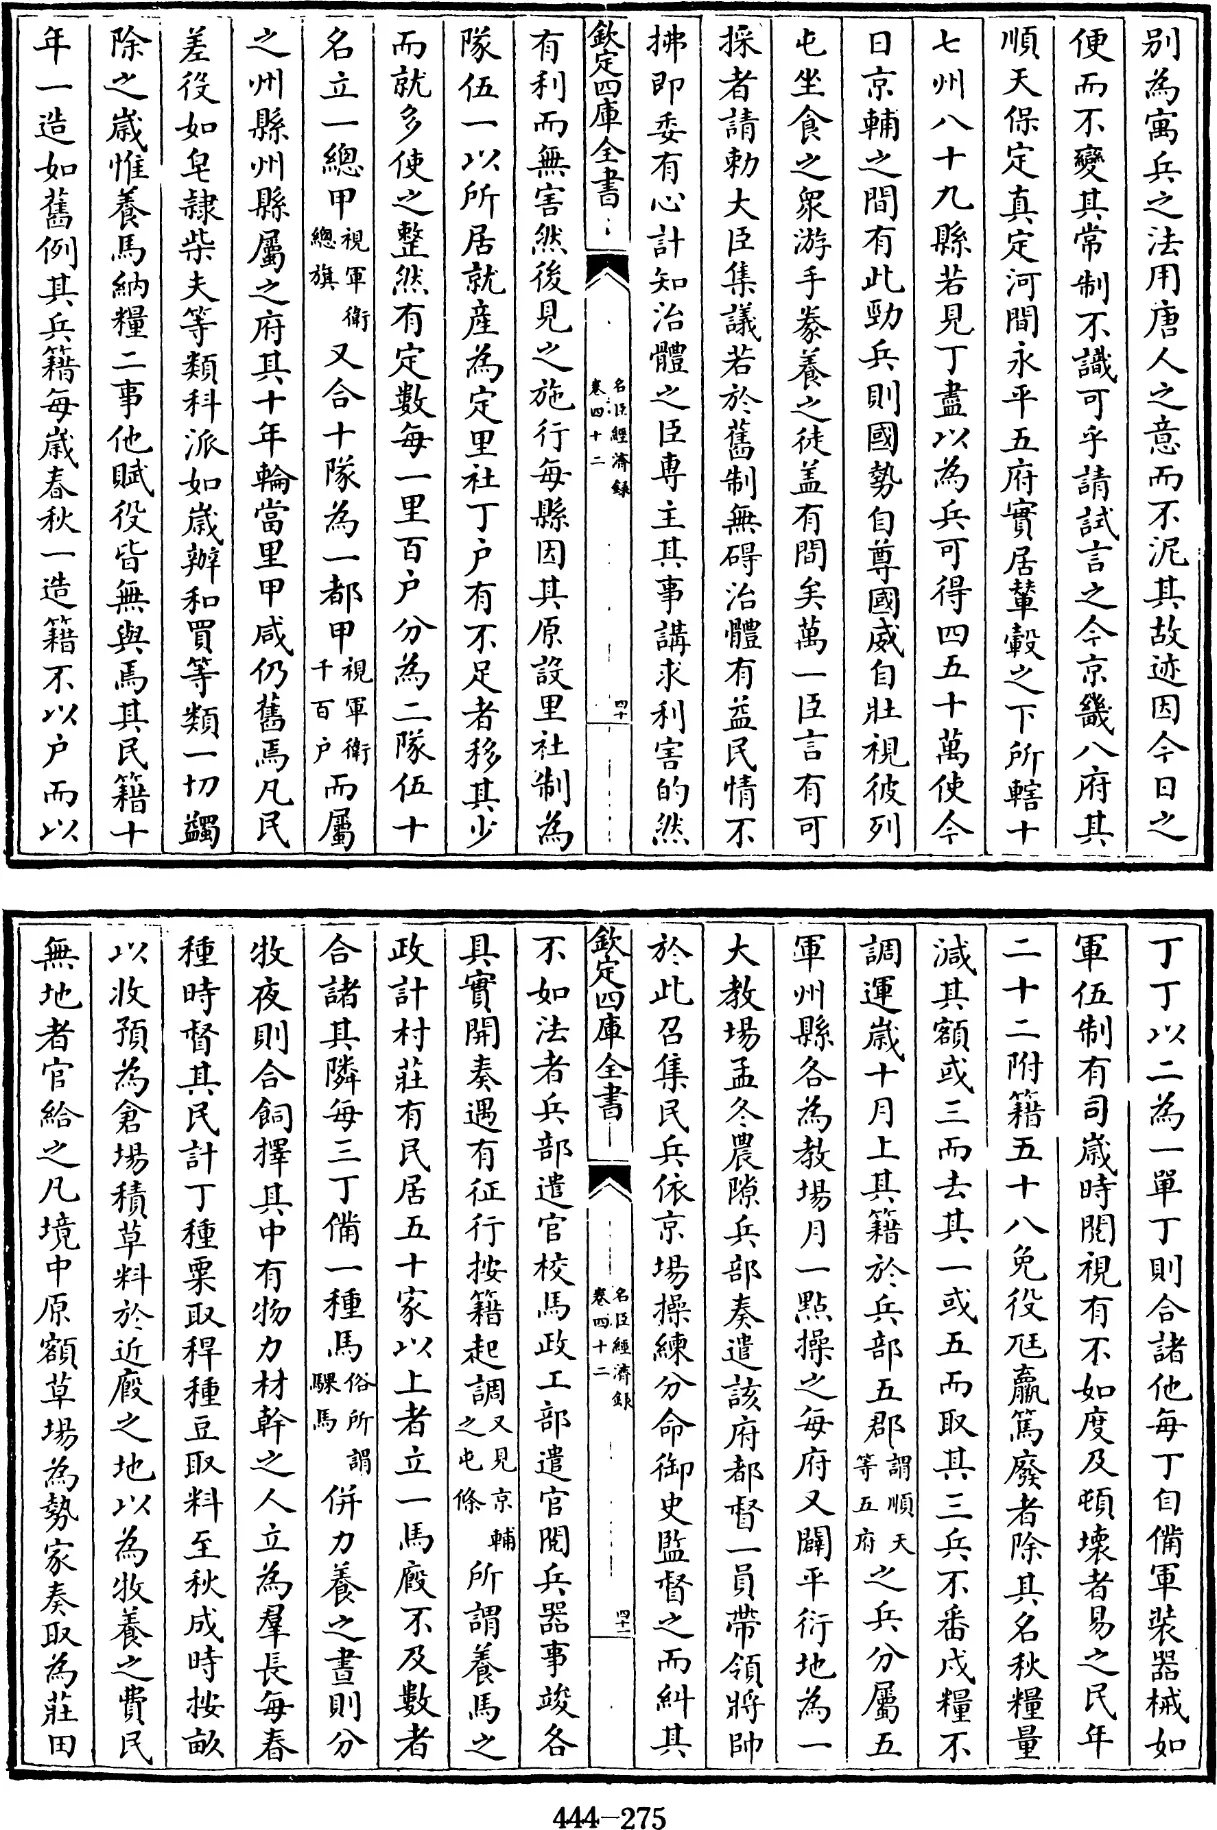 別為寓兵之法用唐人之意而不泥其故迹因今日之
便而不變其常制不識可乎請試言之今京畿八府其
順天保定真定河間永平五府實居輦轂之下所轄十
七州八十九縣若見丁盡以為兵可得四五十萬使今
日京輔之間有此勁兵則國勢自尊國威自壯視彼列
屯坐食之衆游手豢養之徒盖有間矣萬一臣言有可
採者請勅大臣集議若於舊制無碍治體有益民情不
拂即委有心計知治體之臣專主其事講求利害的然
欽定四庫全書
名臣經濟録
卷四十二
四十
有利而無害然後見之施行每縣因其原設里社制為
隊伍一以所居就產為定里社丁户有不足者移其少
而就多使之整然有定數每一里百户分為二隊伍十
名立一總甲視軍衛總旗又合十隊為一都甲視軍衛千百户而屬
之州縣州縣屬之府其十年輪當里甲咸仍舊焉凡民
差役如皂隷柴夫等類科派如歲辦和買等類一切蠲
除之歲惟養馬納糧二事他賦役皆無與焉其民籍十
年一造如舊例其兵籍每歲春秋一造籍不以户而以
丁丁以二為一單丁則合諸他每丁自備軍裝器械如
軍伍制有司歲時閱視有不如度及頓壞者易之民年
二十二附籍五十八免役尫羸篤廢者除其名秋糧量
減其額或三而去其一或五而取其三兵不番戍糧不
調運歲十月上其籍於兵部五郡謂順天等五府之兵分屬五
軍州縣各為教場月一點操之每府又闢平衍地為一
大教場孟冬農隙兵部奏遣該府都督一員帶領將帥
於此召集民兵依京場操練分命御史監督之而糾其
欽定四庫全書
名臣經濟録
卷四十二
四十一
不如法者兵部遣官校馬政工部遣官閱兵器事竣各
具實開奏遇有征行按籍起調又見京輔之屯條所謂養馬之
政計村莊有民居五十家以上者立一馬廄不及數者
合諸其隣每三丁備一種馬俗所謂騍馬併力養之晝則分
牧夜則合飼擇其中有物力材幹之人立為羣長每春
種時督其民計丁種粟取稈種豆取料至秋成時按畝
以收預為倉場積草料於近廄之地以為牧養之費民
無地者官給之凡境中原額草場為勢家奏取為莊田
444-275